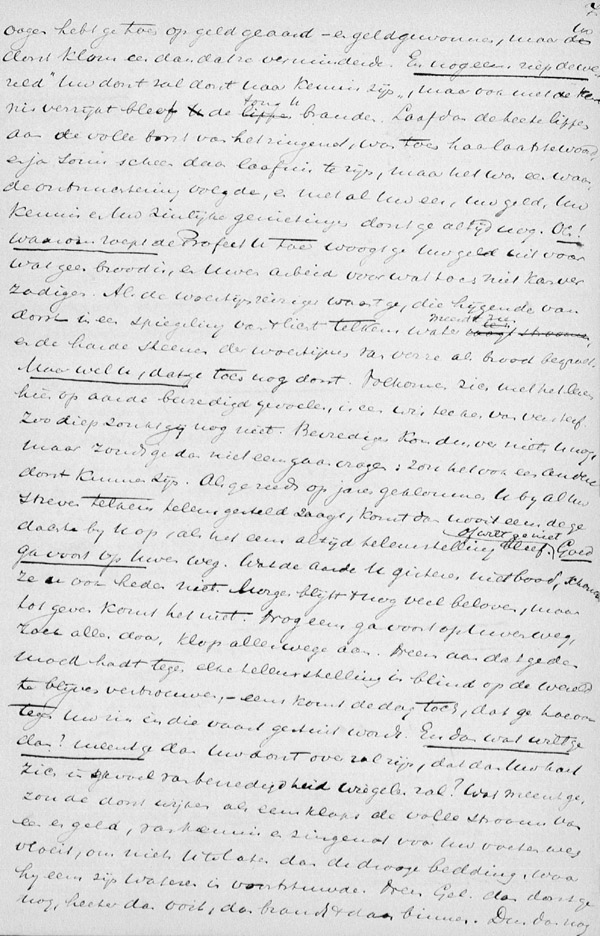 7
oogen hebt ge toes op geld geaard - en geld gewonnen, maar uw
dorst klom eer dan dat ze verminderde. En nog eens riep de we-
reld "Uw dorst zal dorst naar kennis zijn", maar ook met de ken-
nis verrijkt bleef U de tong U branden. Laaf dan de heete lippen
aan de volle borst van het zingend, was toen haar laatste woord,
en ja soms scheen daar laafnis te zijn, maar het was een waan
de ontnuchtering volgde, en met al Uw eer, Uw geld, Uw
kennis en Uw zinlijke genietingen dorst ge altijd nog. O!
waarom roept de Profeet U toe woogt ge Uw geld uit voor
wat geen brood is, en Uwen arbeid voor wat toch niet kan ver-
zadigen. Als de woestijnreiziger waart ge, die hijgende van
dorst in een spiegeling van 't licht telkens water meende te zien
en de harde steenen der woestijn van verre als brood begroet.
Maar wel U, dat ge toch nog dorst. Volkomen zich met het leven
hier op aarde bevredigd gevoelen, is een wis teeken van versterf
Zoo diep zonkt gij nog niet. Bevredigen kon den ver niets U nog
maar zoudt ge dan niet eens gaan vragen: zou het ook een andere
dorst kunnen zijn. Als ge reeds op jaren geklommen U bij al Uw
streven telkens teleurgesteld zaagt, komt dan nooit eens de ge-
dachte bij U op, als het eens altijd teleurstelling bleef. Of wilt ge niet Goed
ga voort op Uwen weg. Wat de aarde U gisteren niet bood,
ze U ook heden niet. Morgen blijft U nog veel beloven, maar
tot geven komt het niet. Nog eens ga voort op Uwen weg,
zoek alles door, klop allerwege aan. Neem aan dat ge den
moed hadt tegen elke teleurstelling in blind op de wereld
te blijven vertrouwen, - eens komt de dag toch, dat ge hierin
tegen Uw zin in die vaart gestuit wordt. En dan wat wilt ge
dan? meent ge dan Uw dorst over zal zijn, dat dan Uw hart
zich in gevoel van bevredigdheid wiegelen zal? Wat meent ge,
zou de dorst wijken als eensklaps de volle stroom van
eer en geld, van kennis en zingenot voor Uw voeten weg
vloeit, om niets U te laten dan de drooge bedding, waar
hij eens zijn wateren in voortstuwde. Neen Gel. dan dorst ge
nog, heeter dan ooit, dan brandt 't daar binnen. Den dan nog